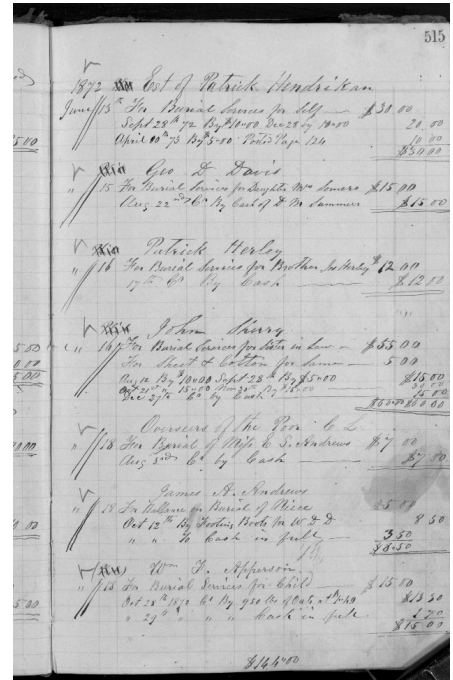 515
1872 Est of Patrick Hendrikan
June 13th For Burial Services for Self $30.00
Sept 28th 72 By $10.00 Dec 28 by 10.00 20 00
April 10th 73 By 5.00 Posted Page 124 10 00
$30.00
Geo D. Davis
" 15 For Burial Services for Daughter Mrs Somers $15.00
Aug 22nd Cr By Cash of D M Sammers $15.00
Patrick Herley
" 16 For Burial Services for Brother Jno Herley $12 00
17th Cr By Cash $12.00
John Sherry
" 16 For Burial Services for Sister in Law $55.00
For Sheet & Cotton for Same 5 00
Aug 12 By 10.00 Sept 28th By $5.00 $15.00
Oct 21st " 15.00 Nov 30th By 15.00 30 00
Dec 27th Cr by Cash 15 00
$60.00 $60.00
Overseers of the Poor C L
" 18 For Burial of Miss E. S. Andrews $7 00
Aug 3rd Cr by Cash $7.00
James A. Andrews
" 18 For on Burial of Niece
Oct 12th By Footing Boots for W D D 8 50
" " To Cash in full 3.50
$8.50
Wm F. Apperson
" 18 For Burial Services for Child $15.00
Oct 28th 1872 Cr By 950 lbs of Oats $13 30
" 29th " " " Cash in full 1 70
$15.00
$144.00